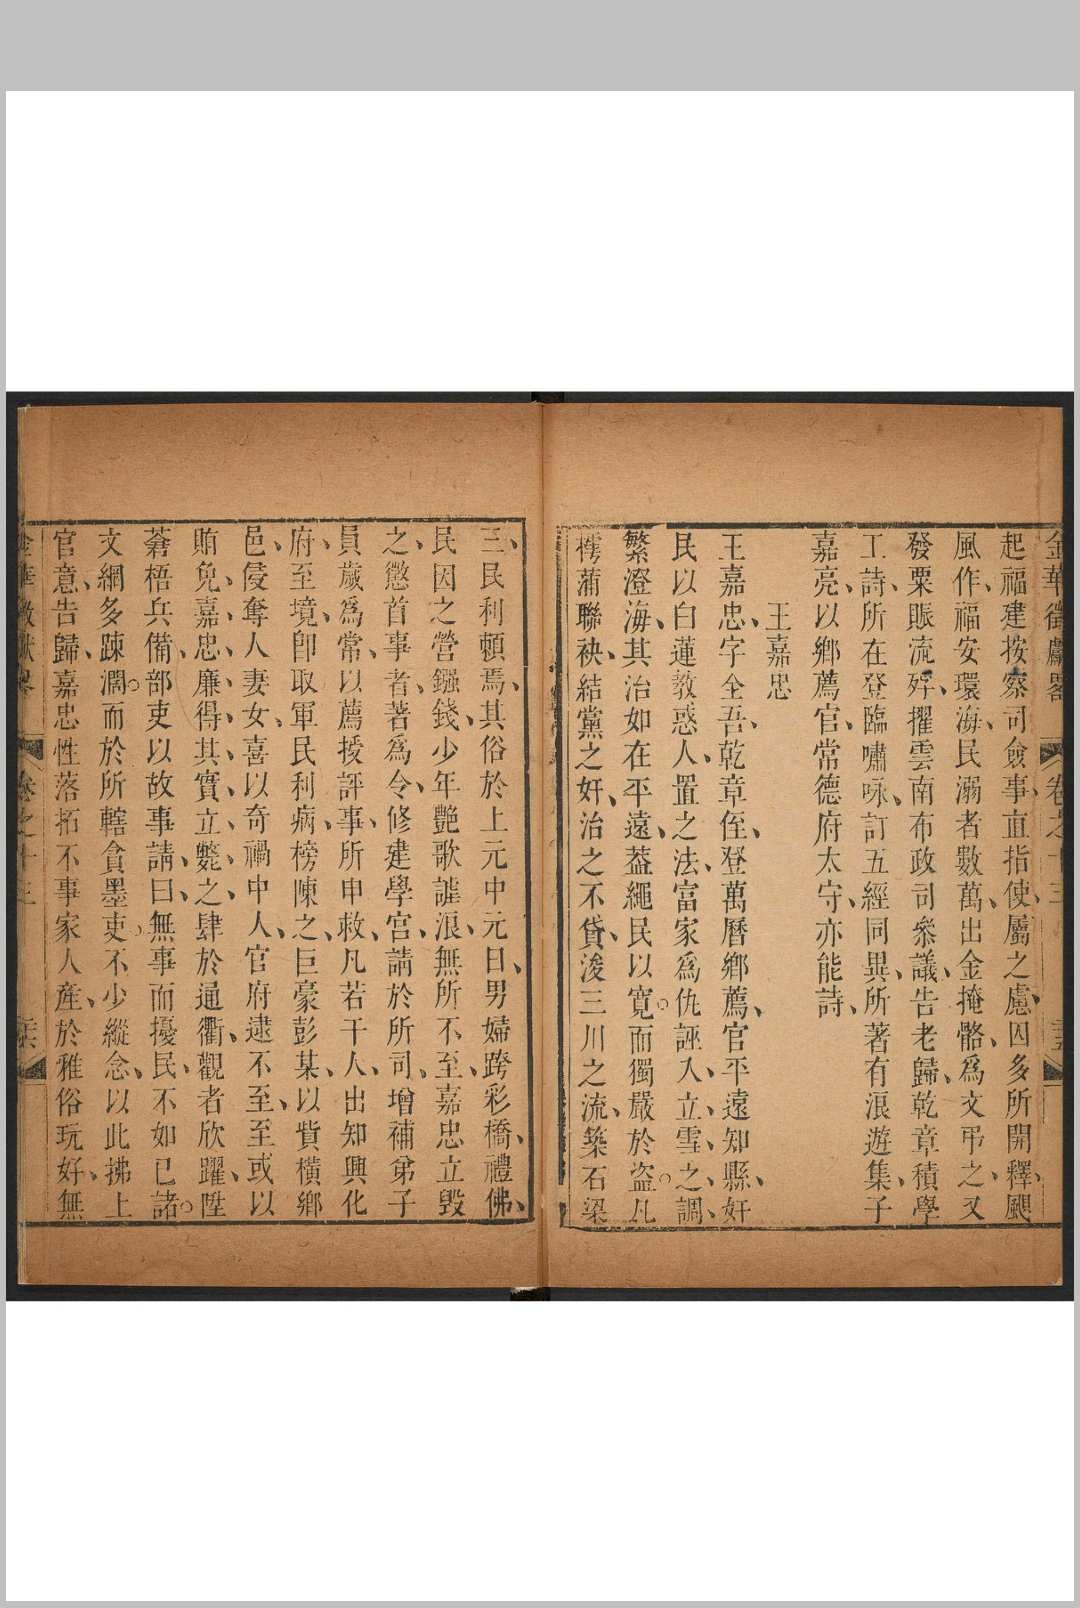 金華徵獻畧 卷之十三
起福建按察司僉事直指使屬之慮囚多所開釋颶
風作福安環海民溺者數萬出金掩骼為文弔之又
發粟賑流殍擢雲南布政司叅議告老歸乾章積學
工詩所在登臨嘯咏訂五經同異所著有浪遊集子
嘉亮以鄉薦官常德府太守亦能詩
王嘉忠
王嘉忠字全吾乾章侄登萬曆鄉薦官平遠知縣奸
民以白蓮教惑人置之法富家為仇誣入立雪之調
繁澄海其治如在平遠葢繩民以寬而獨嚴於盗凡
樗蒲聯袂結黨之奸治之不貸浚三川之流築石梁
三民利頼焉其俗於上元中元日男婦跨彩橋禮佛
民因之營鏹錢少年艷歌謔浪無所不至嘉忠立毀
之懲首事者著為令修建學宫請於所司增補弟子
員歲為常以薦授評事所申救凡若干人出知興化
府至境卽取軍民利病榜陳之巨豪彭某以貲橫鄉
邑侵奪人妻女喜以奇禍中人官府逮不至至或以
賄免嘉忠廉得其實立斃之肆於通衢觀者欣躍陞
蒼梧兵備部吏以故事請曰無事而擾民不如已諸
文網多踈濶而於所轄貪墨吏不少縱念以此拂上
官意告歸嘉忠性落拓不事家人產於雅俗玩好無
金華徵獻畧 卷之十三